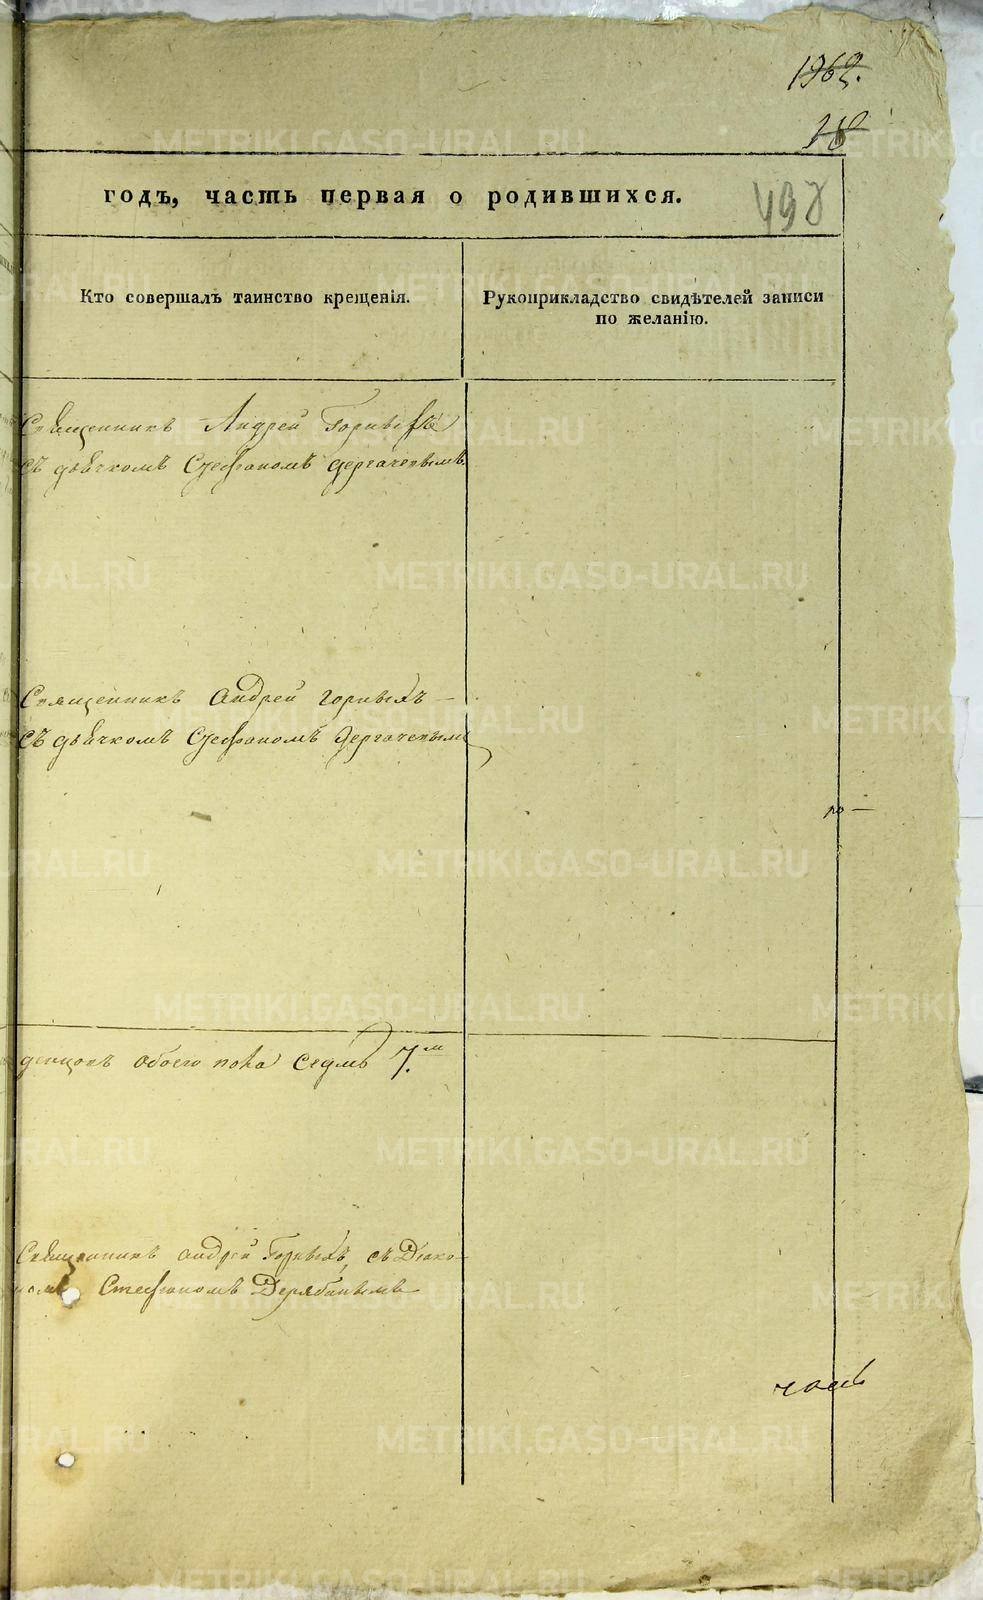 1969.
18
498
годъ, часть первая о родившихся.
Кто совершалъ таинство крещенія.
Рукоприкладство свидѣтелей записи
по желанію.
Священникъ Андрей Горныхъ
съ дьячкомъ Стефаномъ Дергачевымъ
Священникъ Андрей Горныхъ —
съ дьячкомъ Стефаномъ Дергачевымъ
ро —
денцовъ обоего пола седмь 7.м
Священникъ Андрей Горныхъ, съ Діако-
номъ Стефаномъ Дерябинымъ
METRIKI.GASO-URAL.RU